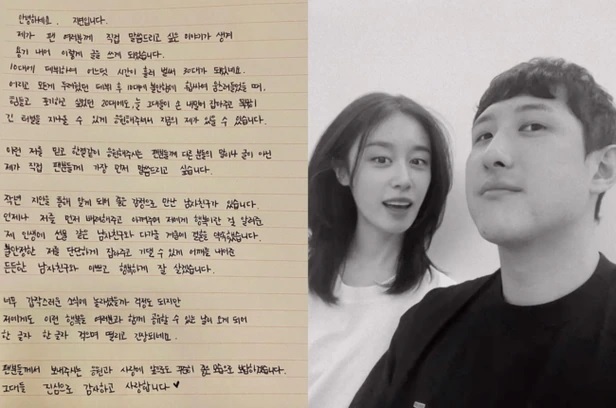 안녕하세요. 지연입니다.
제가 팬 여러분께 직접 말씀드리고 싶은 이야기가 생겨
용기 내어 이렇게 글을 쓰게 되었습니다.
10대에 데뷔하여 어느덧 시간이 흘러 벌써 30대가 되었네요.
어리고 모든게 두려웠던 데뷔 후 10대에 불안함에
힘들고 포기하고 싶었던 20대에도, 늘 그대들이 손 내밀어 잡아주고 묵묵히
긴 터널을 지나올 수 있게 응원해주셔서 지금의 제가 있을 수 있습니다.
이런 저를 믿고 한결같이 응원해주시는 팬분들께 다른 분들의 말이나 글이 아닌
제가 직접 팬분들께 가장 먼저 말씀드리고 싶습니다.
작년 지인을 통해 알게 되어 좋은 감정으로 만난 남자친구가 있습니다.
언제나 저를 먼저 배려해주고 아껴주며 저에게 행복이란 걸 알려준
제 인생에 선물 같은 남자친구와 다가올 겨울에 결혼을 약속했습니다.
불안정한 저를 단단하게 잡아주고 기댈 수 있게 어깨를 내어준
든든한 남자친구와 예쁘고 행복하게 잘 살겠습니다.
너무 갑작스러운 소식에 놀라셨을까 걱정도 되지만
저에게도 이런 행복을 여러분과 함께 공유할 수 있는 날이 오게 되어
한 글자 한 글자 적으며 떨리고 긴장되네요.
팬분들께서 보내주시는 응원과 사랑에 앞으로도 꾸준히 좋은 모습으로 보답하겠습니다.
그대들 진심으로 감사하고 사랑합니다 ♥